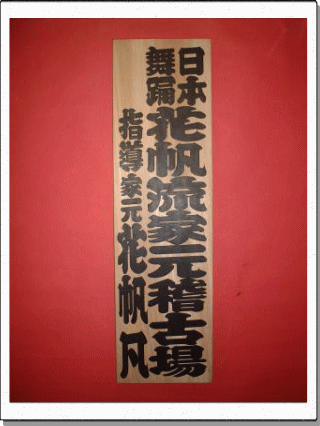 日本舞踊
花帆流家元稽古場
指導家元花帆凡